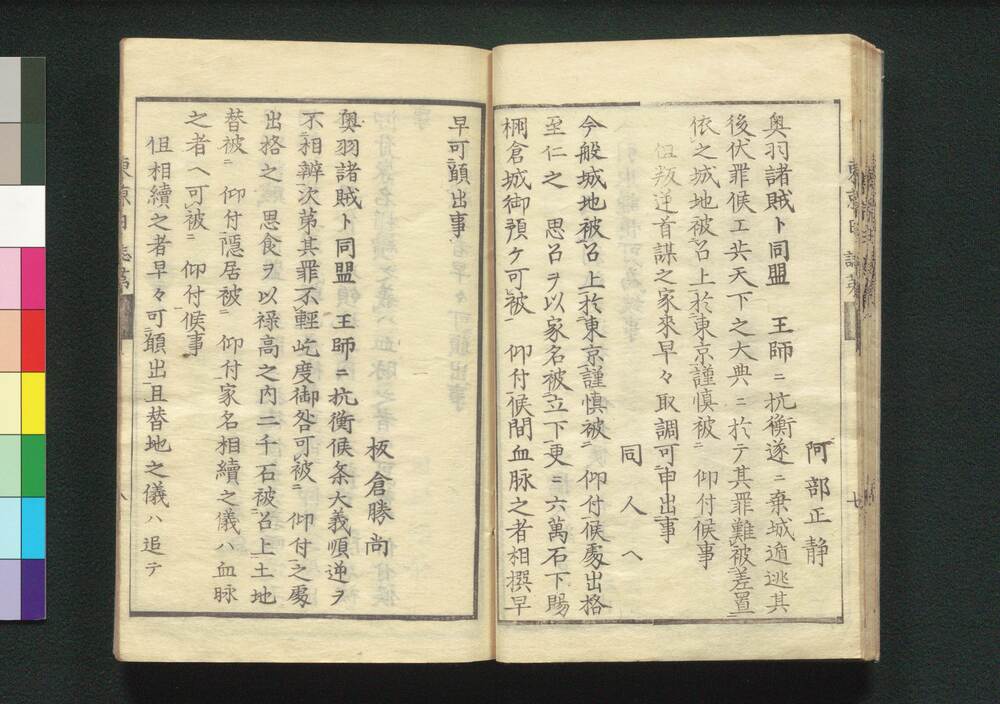 阿部正静
奥羽諸賊ト同盟 王師ニ抗衡遂ニ棄城遁逃其
後伏罪候エ共天下之大典ニ於テ其罪難被差置
依之城地被召上於東京謹慎被ニ 仰付候事
但叛逆首謀之家来早々取調可申出事
同人へ
今般城地被召上於東京謹慎被ニ 仰付候処出格
至仁之 思召ヲ以家名被立下更ニ六萬石下賜
棚倉城御預ケ可被 仰付候間血脉之者相撰早
早可願出事
板倉勝尚
奥羽諸賊ト同盟 王師ニ抗衡候条大義順逆ヲ
不相辨次第其罪不輕屹度御咎可被ニ 仰付之處
出格之 思食ヲ以禄高之内二千石被召上土地
替被ニ 仰付隠居被ニ 仰付家名相續之儀ハ血脉
之者へ可被ニ 仰付候事
但相續之者早々可願出且替地之儀ハ追テ
七